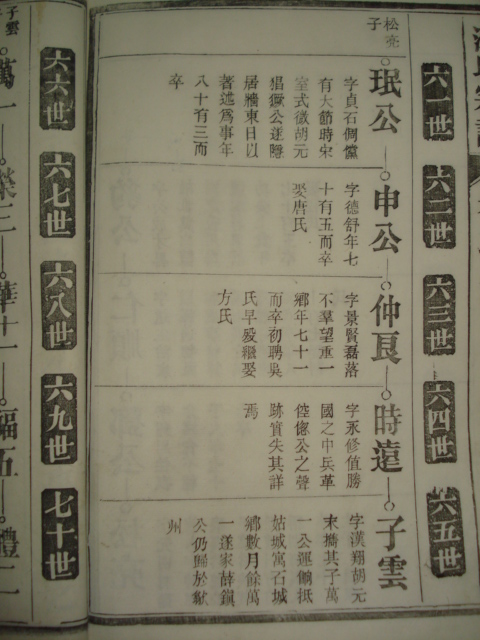 六一世
六二世
六三世
六四世
六五世
松亮
子
珉公
字貞石倜儻
有大節時宋
室式微胡元
猖獗公遂隱
居牆東日以
著述爲事年
八十有三而
卒
申公
字德舒年七
十有五而卒
娶唐氏
仲良
字景賢磊落
不羣望重一
鄉年七十一
而卒初聘吳
氏早歿繼娶
方氏
時遠
字永修值勝
國之中兵革
倥傯公之聲
跡實失其詳
焉
子雲
字漢翔胡元
末攜其子萬
一公運餉抵
姑城寓石城
鄉數月餘萬
一遂家薛鎮
公仍歸於歙
州
六六世
六七世
六八世
六九世
七十世
子雲
子
萬一
榮三
華十一
福五
禮二